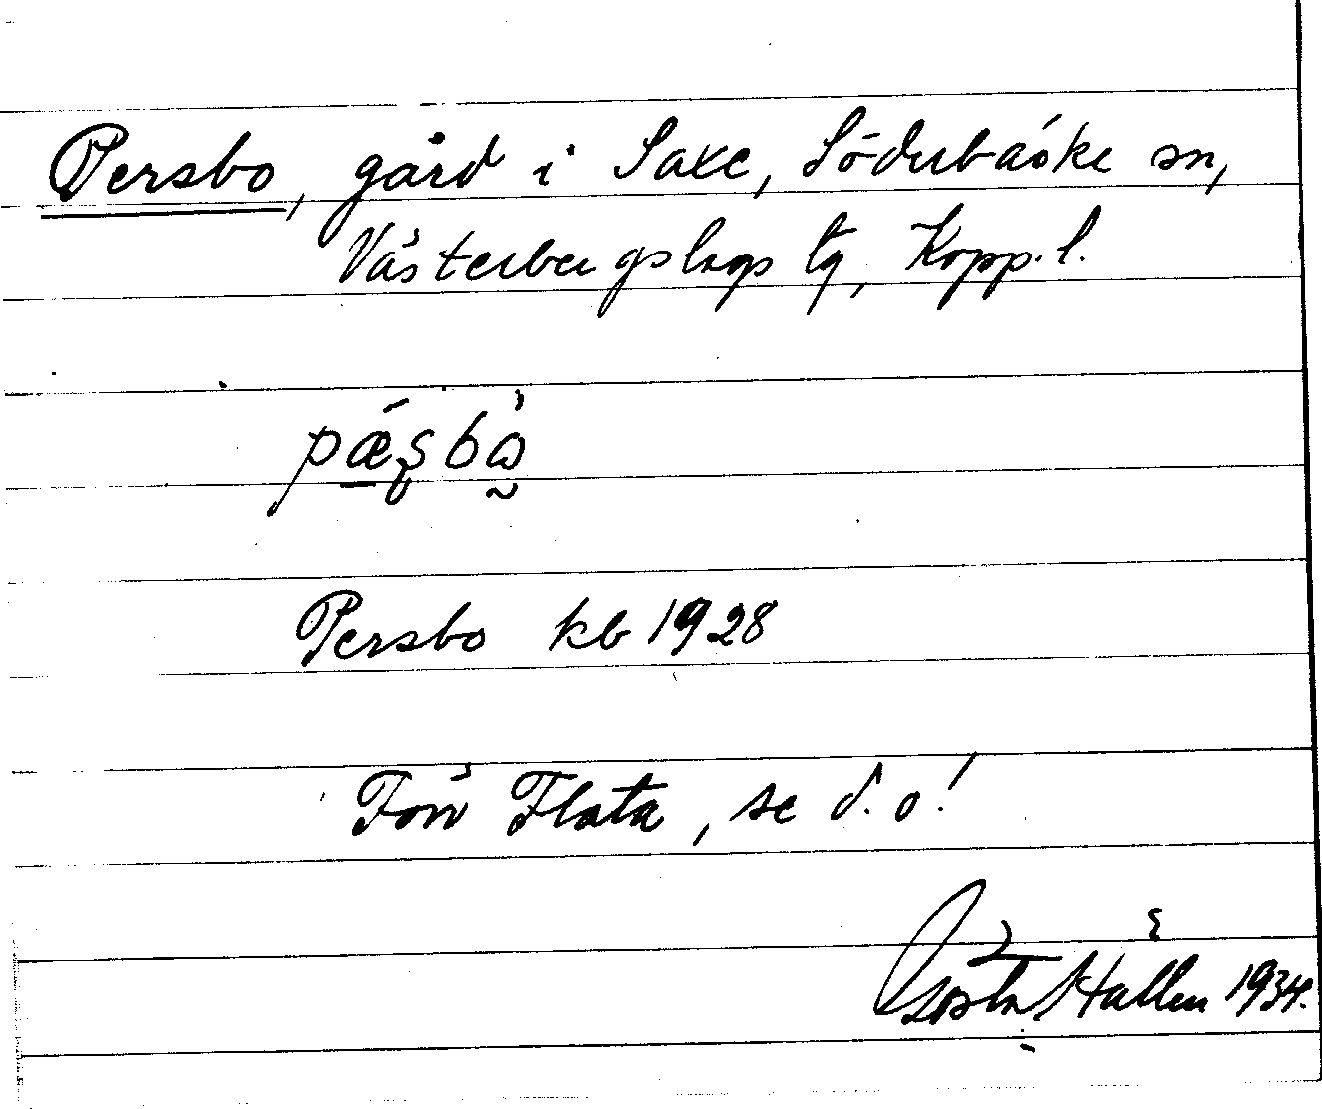 Persbo, gård i Saxe, Söderbärke sn,
Västerbergslags tg, Kopp. l.
pǽʂbὰ̰
Persbo kb 1928
Förr Flata, se d. o!
Gösta Hallén 1934.